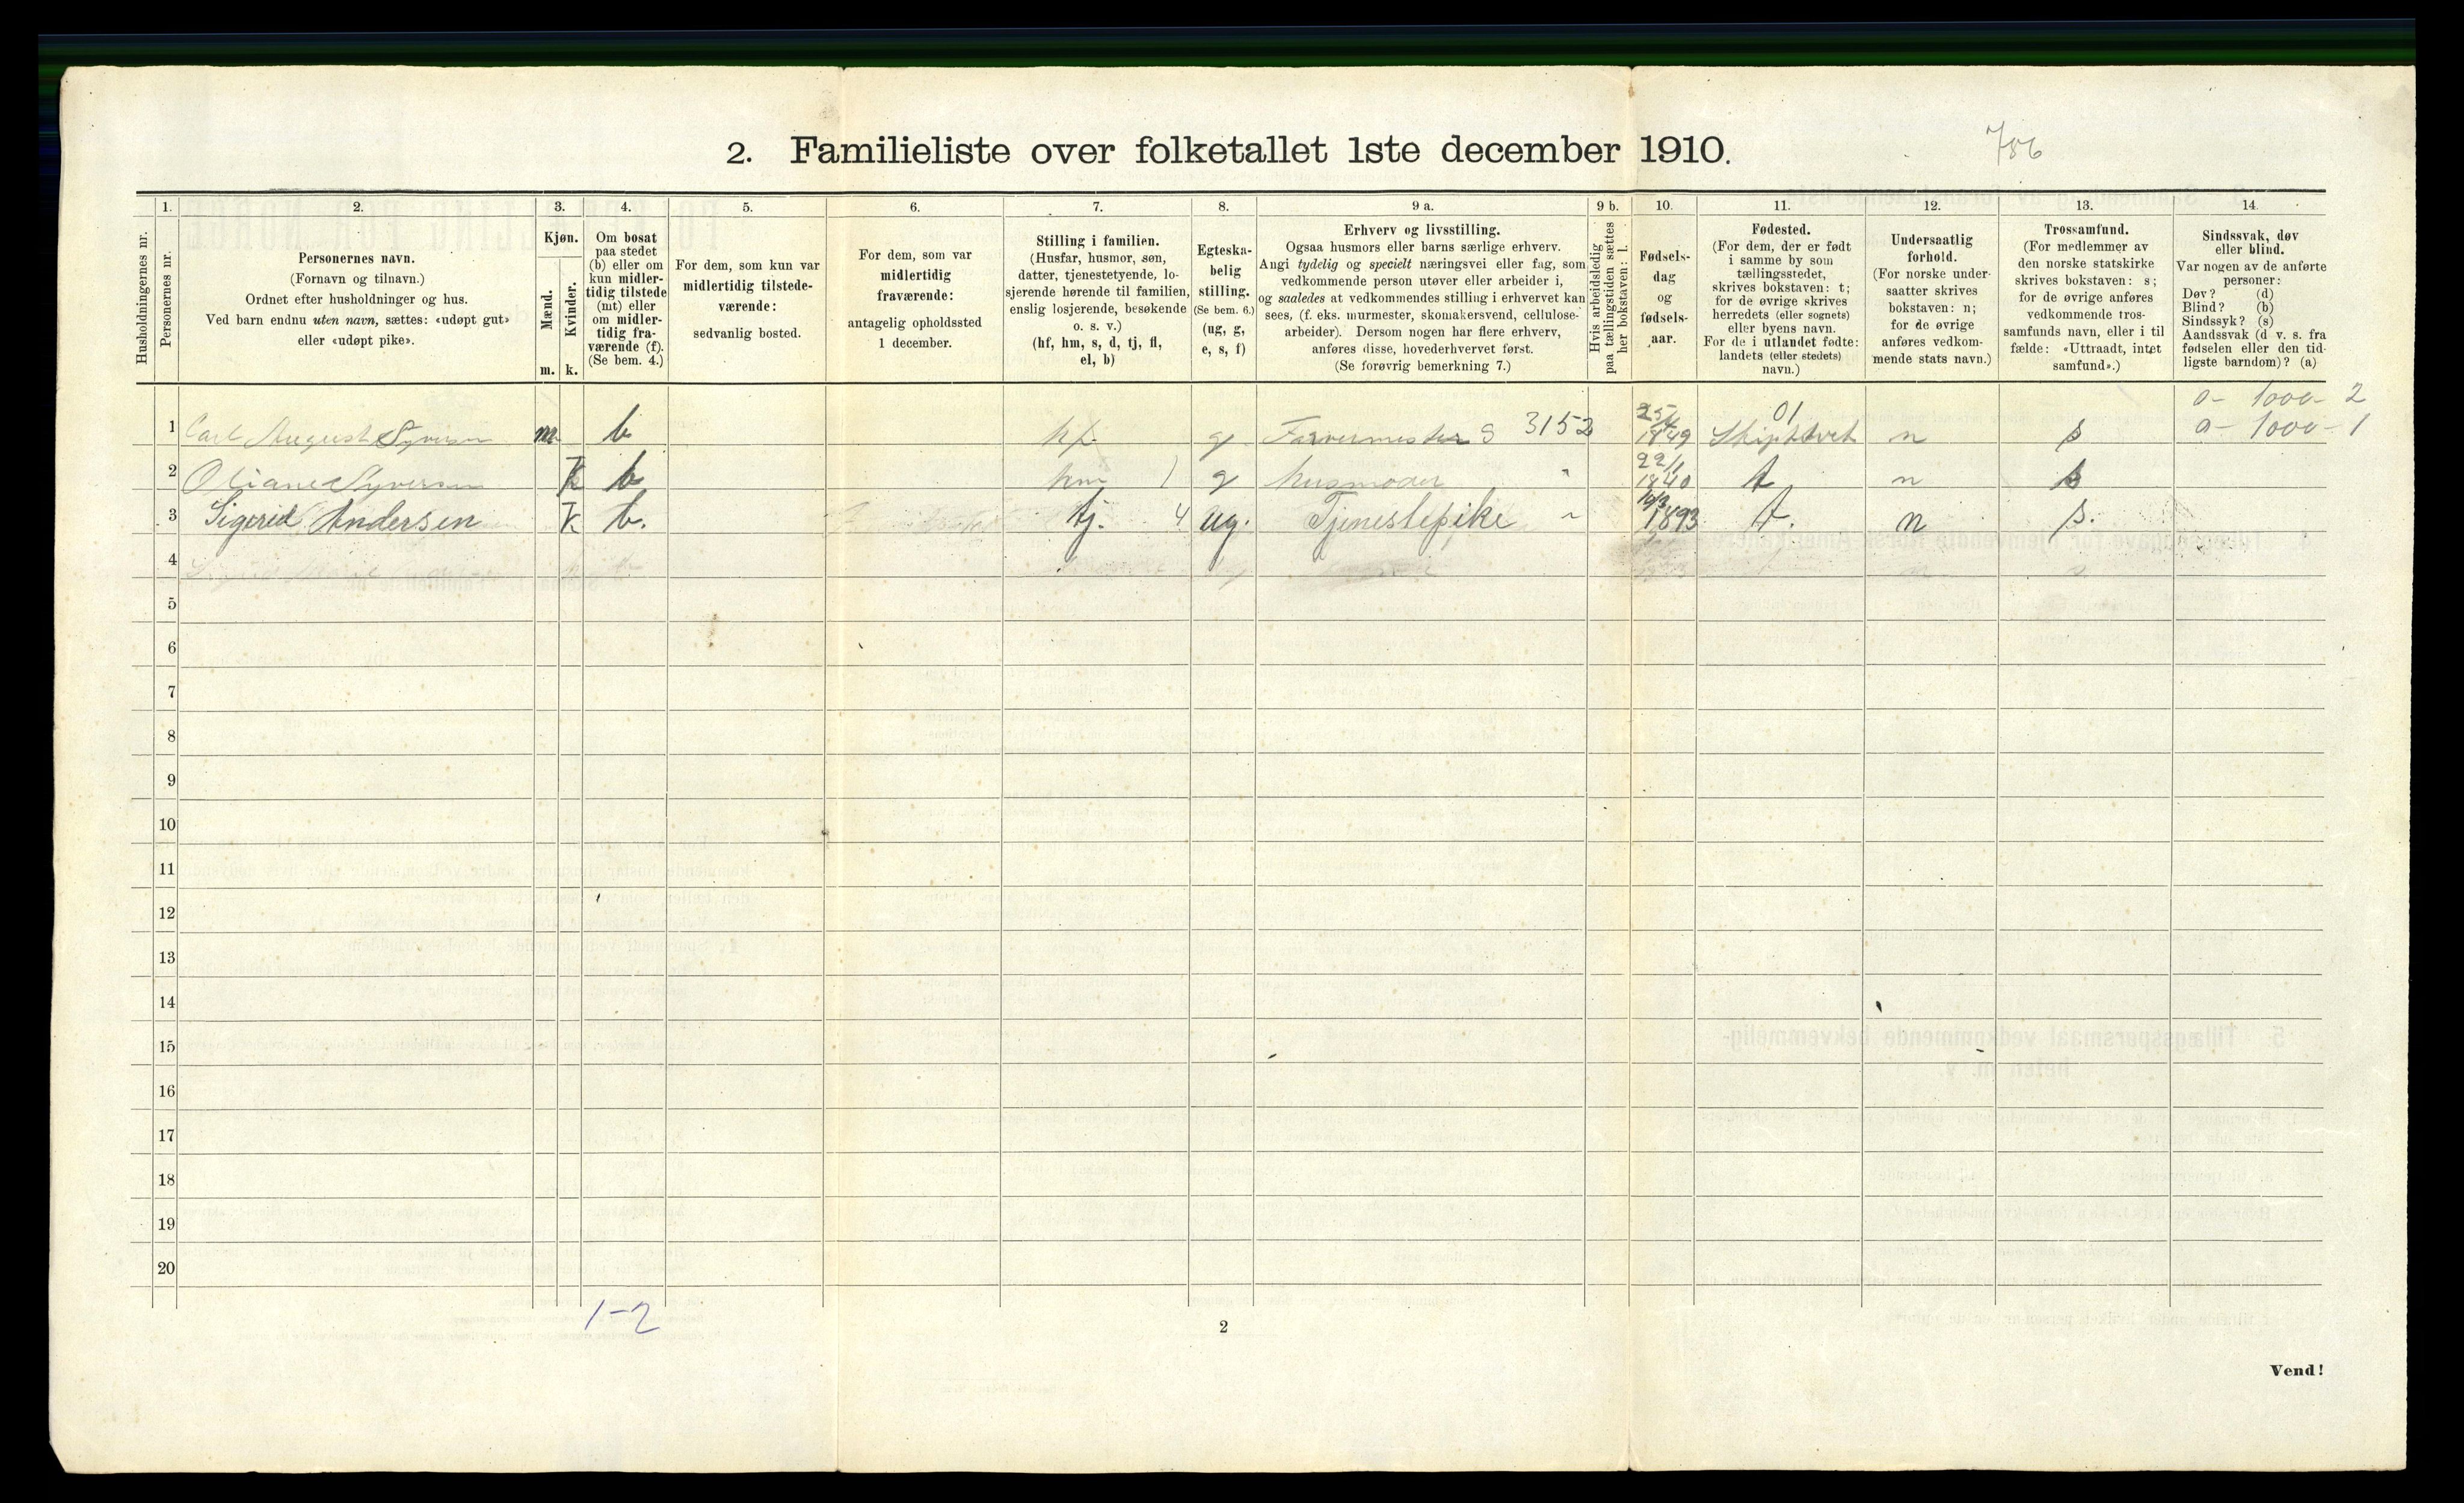 786
2. Familieliste over folketallet 1ste december 1910.
Husholdningernes nr.
1.
Personernes nr.
2.
Personernes navn.
(Fornavn og tilnavn.)
Ordnet efter husholdninger og hus.
Ved barn endnu uten navn, sættes: «udøpt gut»
eller «udøpt pike».
3.
Kjøn.
Mænd.
Kvinder.
m. k.
4.
Om bosat
paa stedet
(b) eller om
kun midler-
tidig tilstede
(mt) eller
om midler-
tidig fra-
værende (f).
(Se bem. 4.)
5.
For dem, som kun var
midlertidig tilstede-
værende:
sedvanlig bosted.
6.
For dem, som var
midlertidig
fraværende:
antagelig opholdssted
1 december.
7.
Stilling i familien.
(Husfar, husmor, søn,
datter, tjenestetyende, lo-
sjerende hørende til familien,
enslig losjerende, besøkende
o. s. v.)
(hf, hm, s, d, tj, fl,
el, b)
8.
Egteska-
belig
stilling.
(Se bem. 6.)
(ug, g,
e, s, f)
9 a.
Erhverv og livsstilling.
Ogsaa husmors eller barns særlige erhverv.
Angi tydelig og specielt næringsvei eller fag, som
vedkommende person utøver eller arbeider i,
og saaledes at vedkommendes stilling i erhvervet kan
sees, (f. eks. murmester, skomakersvend, cellulose-
arbeider). Dersom nogen har flere erhverv,
anføres disse, hovederhvervet først.
(Se forøvrig bemerkning 7.)
9 b.
Hvis arbeidsledig
paa tællingstiden sættes
her bokstaven: l.
10.
Fødsels-
dag
og
fødsels-
aar.
11.
Fødested.
(For dem, der er født
i samme by som
tællingsstedet,
skrives bokstaven: t;
for de øvrige skrives
herredets (eller sognets)
eller byens navn.
For de i utlandet fødte:
landets (eller stedets)
navn.)
12.
Undersaatlig
forhold.
(For norske under-
saatter skrives
bokstaven: n;
for de øvrige
anføres vedkom-
mende stats navn.)
13.
Trossamfund.
(For medlemmer av
den norske statskirke
skrives bokstaven: s;
for de øvrige anføres
vedkommende tros-
samfunds navn, eller i til
fælde: «Uttraadt, intet
samfund».)
14.
Sindssvak, døv
eller blind.
Var nogen av de anførte
personer:
Døv? (d)
Blind? (b)
Sindssyk? (s)
Aandssvak (d v. s. fra
fødselen eller den tid-
ligste barndom)? (a)
0 - 1000 - 2
1 Carl August Syversen m b hf g Farvermester S 3152 25/4 1849 01 Skiptvet n s 0 - 1000 - 1
2 Oliane Syversen k b hm 1 g husmoder " 22/1 1840 t n s
3 Sigrid Andersen k b. tj. 4 ug. Tjenestepike " 1893 t. n s.
4
5
6
7
8
9
10
11
12
13
14
15
16
17
18
19
20
1-2
2
Vend!